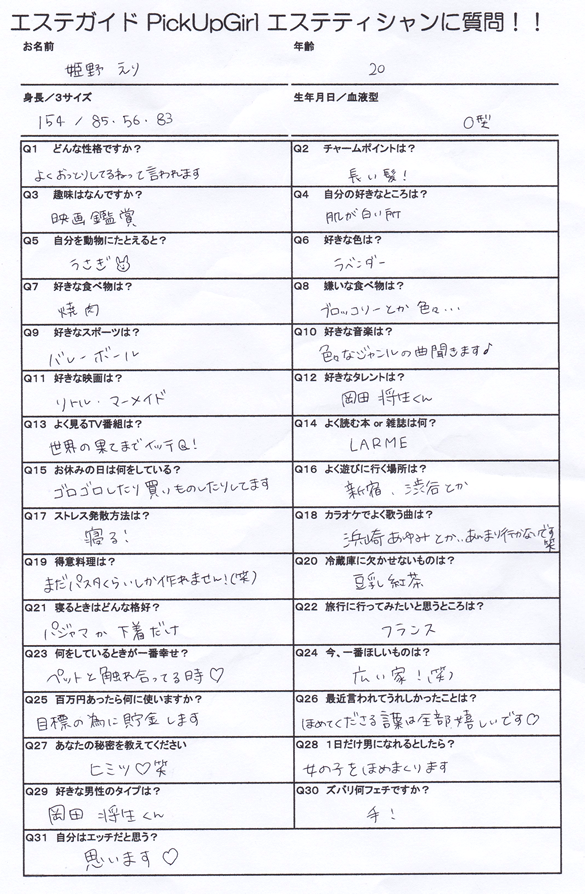 エステガイド PickUpGirl エステティシャンに質問！！
お名前
年齢
姫野 えり
20
身長／3サイズ
生年月日／血液型
154 / 85・56・83
O型
Q1 どんな性格ですか？
Q2 チャームポイントは？
よくおっとりしてるねって言われます
長い髪！
Q3 趣味はなんですか？
Q4 自分の好きなところは？
映画鑑賞
肌が白い所
Q5 自分を動物にたとえると？
Q6 好きな色は？
うさぎ
ラベンダー
Q7 好きな食べ物は？
Q8 嫌いな食べ物は？
焼肉
ブロッコリーとか 色々...
Q9 好きなスポーツは？
Q10 好きな音楽は？
バレーボール
色々なジャンルの曲聞きます♪
Q11 好きな映画は？
Q12 好きなタレントは？
リトル・マーメイド
岡田 将生くん
Q13 よく見るTV番組は？
Q14 よく読む本 or 雑誌は何？
世界の果てまでイッテQ！
LARME
Q15 お休みの日は何をしている？
Q16 よく遊びに行く場所は？
ゴロゴロしたり買いものしたりしてます
新宿、渋谷とか
Q17 ストレス発散方法は？
Q18 カラオケでよく歌う曲は？
寝る！
浜崎あゆみとか、あんまり行かないです笑
Q19 得意料理は？
Q20 冷蔵庫に欠かせないものは？
まだパスタくらいしか作れません！(笑)
豆乳紅茶
Q21 寝るときはどんな格好？
Q22 旅行に行ってみたいと思うところは？
パジャマか下着だけ
フランス
Q23 何をしているときが一番幸せ？
Q24 今、一番ほしいものは？
ペットと触れ合ってる時♡
広い家！(笑)
Q25 百万円あったら何に使いますか？
Q26 最近言われてうれしかったことは？
目標の為に貯金します
ほめてくださる言葉は全部嬉しいです♡
Q27 あなたの秘密を教えてください
Q28 1日だけ男になれるとしたら？
ヒミツ♡笑
女の子をほめまくります
Q29 好きな男性のタイプは？
Q30 ズバリ何フェチですか？
岡田 将生くん
手！
Q31 自分はエッチだと思う？
思います♡